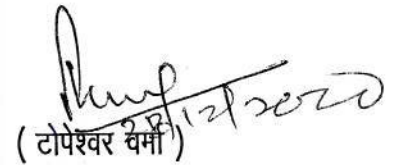 28/12/2020
( टोपेश्वर वर्मा )